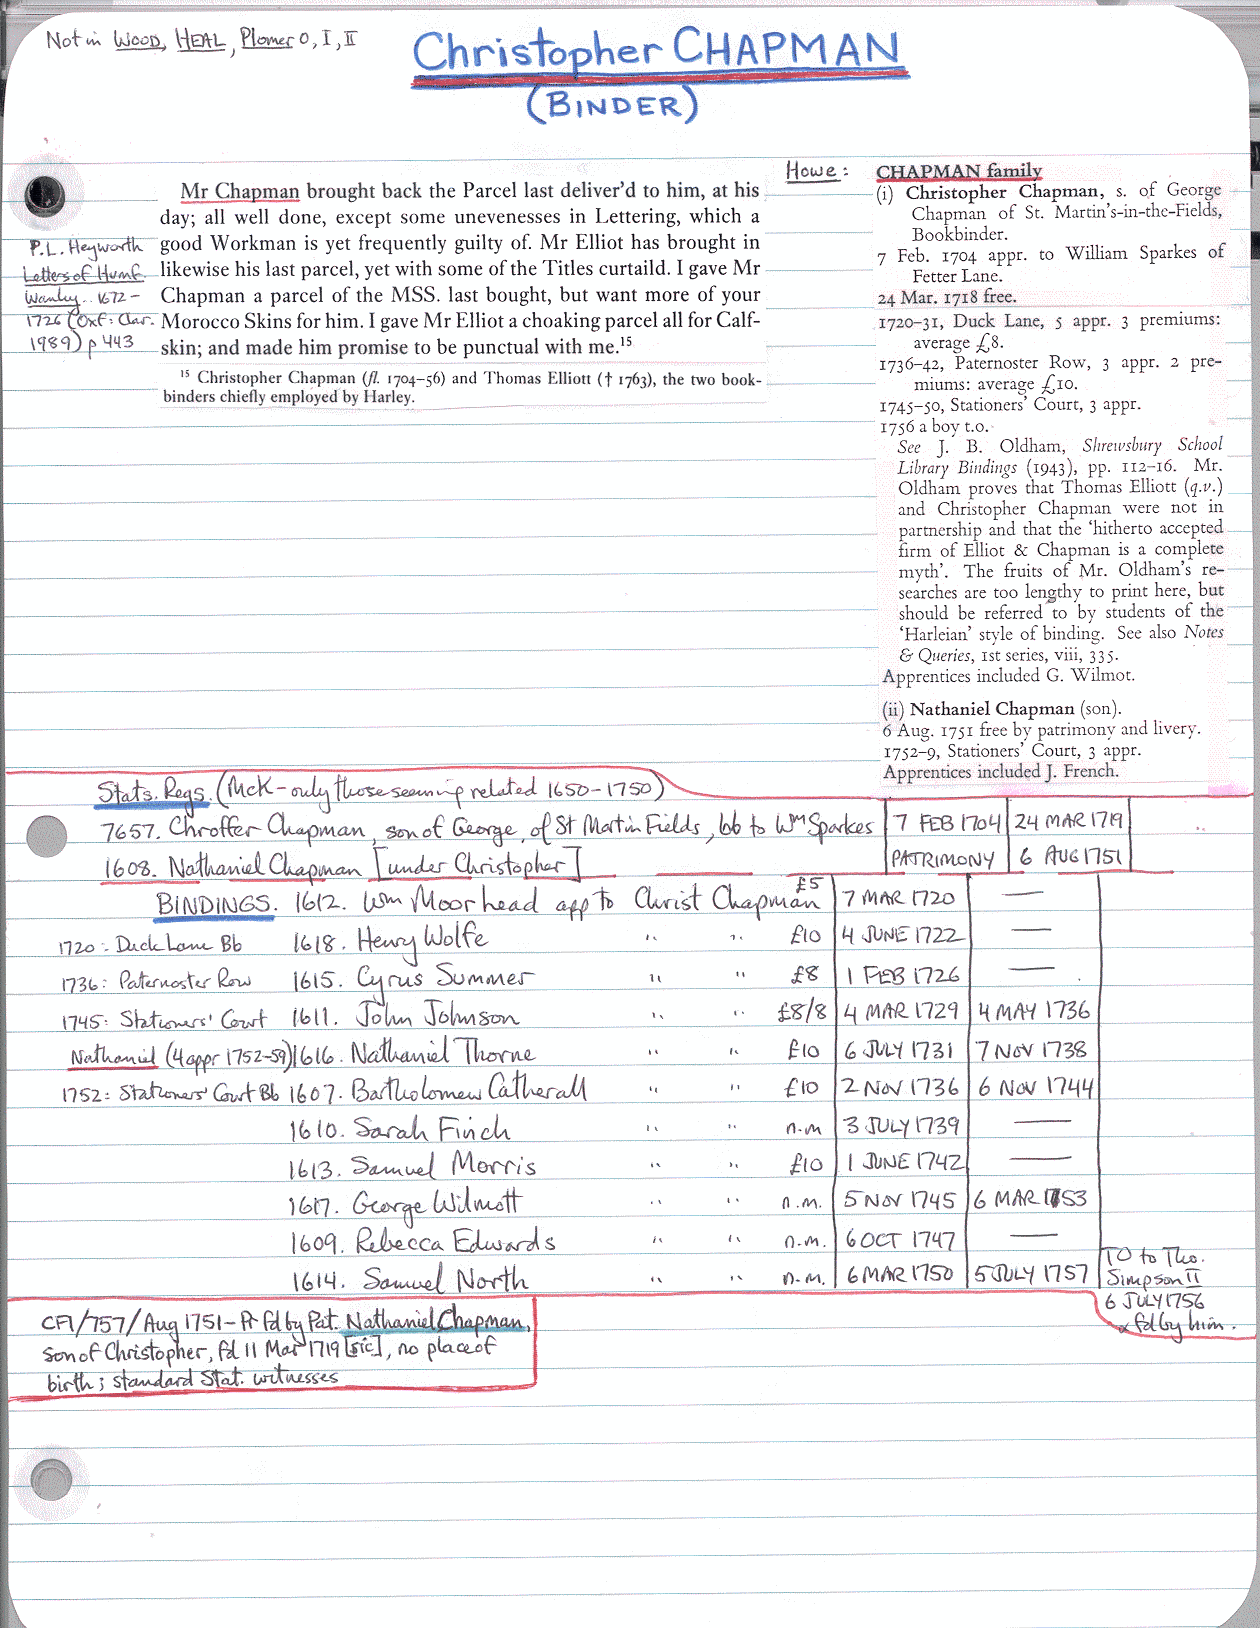 Not in WOOD, HEAL, Plomer O, I, II
Christopher CHAPMAN
(BINDER)
Mr Chapman brought back the Parcel last deliver'd to him, at his
day; all well done, except some unevenesses in Lettering, which a
good Workman is yet frequently guilty of. Mr Elliot has brought in
likewise his last parcel, yet with some of the Titles curtaild. I gave Mr
Chapman a parcel of the MSS. last bought, but want more of your
Morocco Skins for him. I gave Mr Elliot a choaking parcel all for Calf-
skin; and made him promise to be punctual with me.¹⁵
¹⁵ Christopher Chapman (fl. 1704–56) and Thomas Elliott († 1763), the two book-
binders chiefly employed by Harley.
P.L. Heyworth
Letters of Humf.
Wanley.. 1672–
1726 (Oxf: Clar.
1989) p 443
Howe:
CHAPMAN family
(i) Christopher Chapman, s. of George
Chapman of St. Martin's-in-the-Fields,
Bookbinder.
7 Feb. 1704 appr. to William Sparkes of
Fetter Lane.
24 Mar. 1718 free.
1720–31, Duck Lane, 5 appr. 3 premiums:
average £8.
1736–42, Paternoster Row, 3 appr. 2 pre-
miums: average £10.
1745–50, Stationers' Court, 3 appr.
1756 a boy t.o.
See J. B. Oldham, Shrewsbury School
Library Bindings (1943), pp. 112–16. Mr.
Oldham proves that Thomas Elliott (q.v.)
and Christopher Chapman were not in
partnership and that the 'hitherto accepted
firm of Elliot & Chapman is a complete
myth'. The fruits of Mr. Oldham's re-
searches are too lengthy to print here, but
should be referred to by students of the
'Harleian' style of binding. See also Notes
& Queries, 1st series, viii, 335.
Apprentices included G. Wilmot.
(ii) Nathaniel Chapman (son).
6 Aug. 1751 free by patrimony and livery.
1752–9, Stationers' Court, 3 appr.
Apprentices included J. French.
Stats. Regs. (McK – only those seeming related 1650–1750)
7657. Chroffer Chapman, son of George, of St Martin Fields, bb to Wm Sparkes 7 FEB 1704 24 MAR 1719
1608. Nathaniel Chapman [under Christopher] PATRIMONY 6 AUG 1751
BINDINGS. 1612. Wm Moorhead app to Christ Chapman £5 7 MAR 1720 —
1720: Duck Lane Bb 1618. Henry Wolfe " " £10 4 JUNE 1722 —
1736: Paternoster Row 1615. Cyrus Summer " " £8 1 FEB 1726 —
1745: Stationers' Court 1611. John Johnson " " £8/8 4 MAR 1729 4 MAY 1736
Nathaniel (4 appr 1752–59) 1616. Nathaniel Thorne " " £10 6 JULY 1731 7 NOV 1738
1752: Stationers' Court Bb 1607. Bartholomew Catherall " " £10 2 NOV 1736 6 NOV 1744
1610. Sarah Finch " " n.m 3 JULY 1739 —
1613. Samuel Morris " " £10 1 JUNE 1742 —
1617. George Wilmott " " n.m. 5 NOV 1745 6 MAR 1753
1609. Rebecca Edwards " " n.m. 6 OCT 1747 —
1614. Samuel North " " n.m. 6 MAR 1750 5 JULY 1757
TO to Tho.
Simpson II
6 JULY 1756
& fd by him.
CF1/757/Aug 1751 – Pr fd by Pat. Nathaniel Chapman,
son of Christopher, fd 11 Mar 1719 [sic], no place of
birth; standard Stat. witnesses